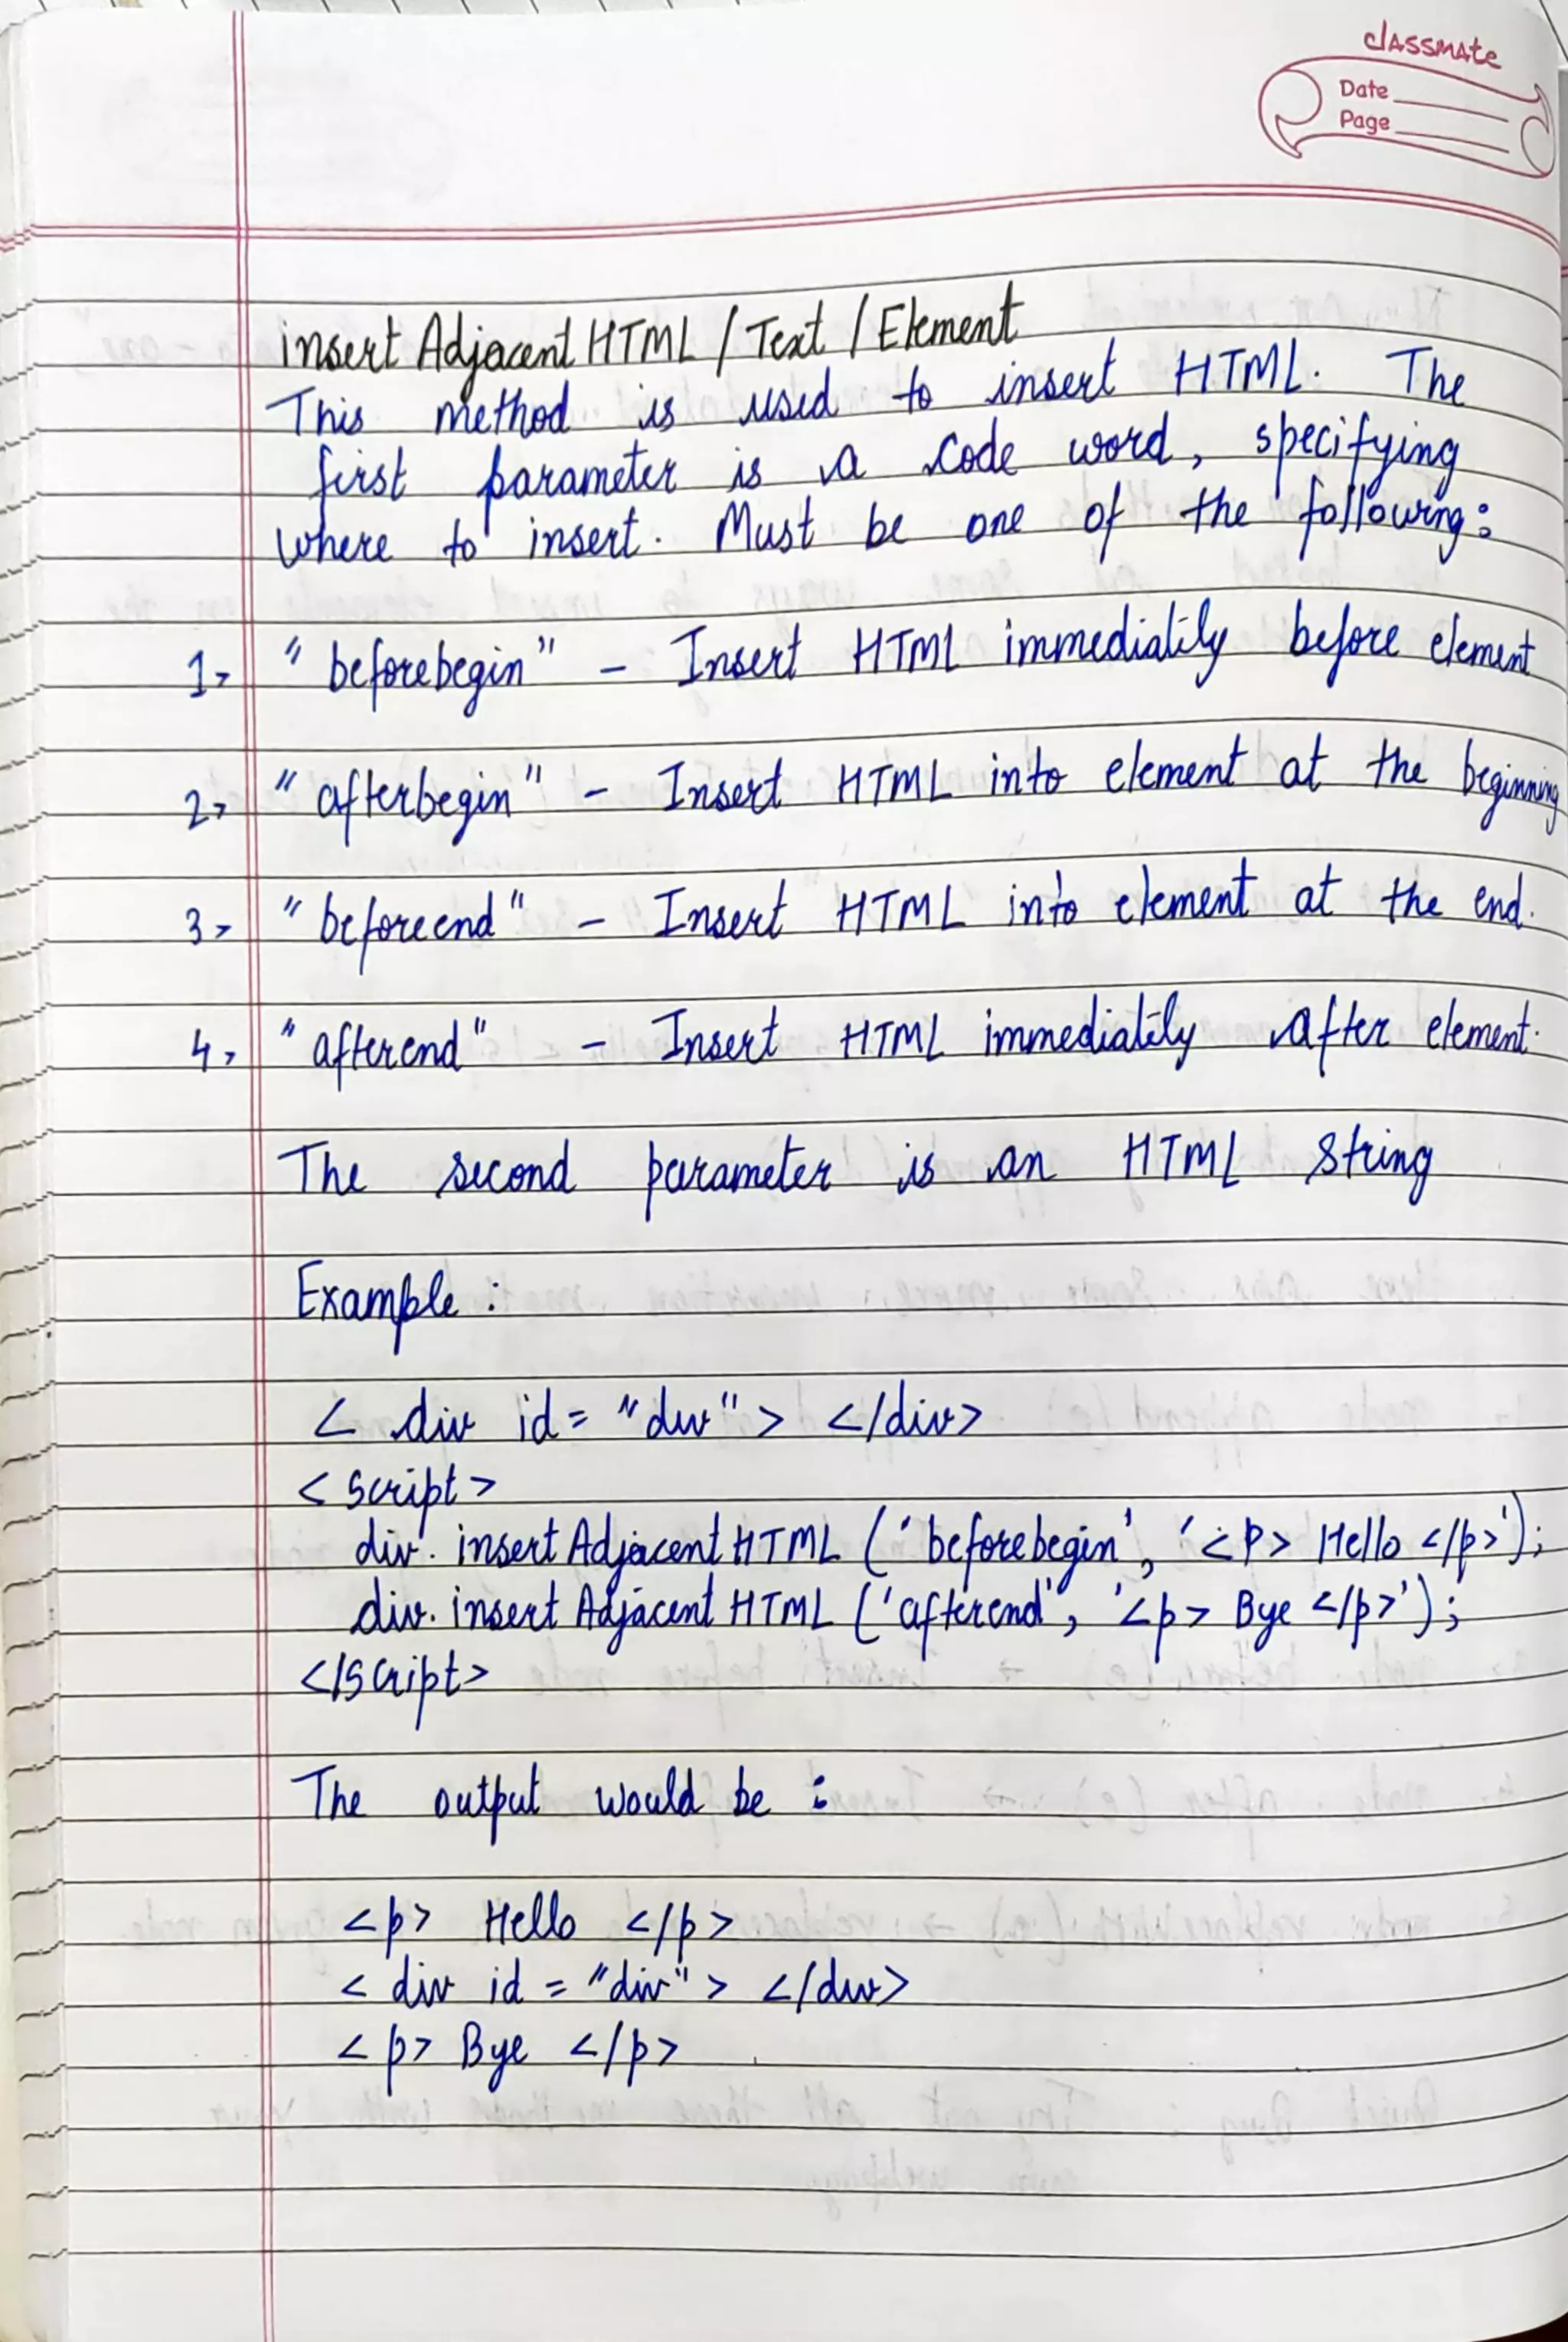 classmate
Date
Page
insert Adjacent HTML / Text / Element
This method is used to insert HTML. The
first parameter is a code word, specifying
where to insert. Must be one of the following:
1- "beforebegin" - Insert HTML immediatily before element
2- "afterbegin" - Insert HTML into element at the beginning
3- "beforeend" - Insert HTML into element at the end.
4- "afterend" - Insert HTML immediatily after element.
The second parameter is an HTML string
Example :
< div id = "div" > </div>
< script >
div. insert Adjacent HTML ('beforebegin', '<p> Hello </p>');
div. insert Adjacent HTML ('afterend', '<p> Bye </p>');
</script>
The output would be :
<p> Hello </p>
< div id = "div" > </div>
<p> Bye </p>